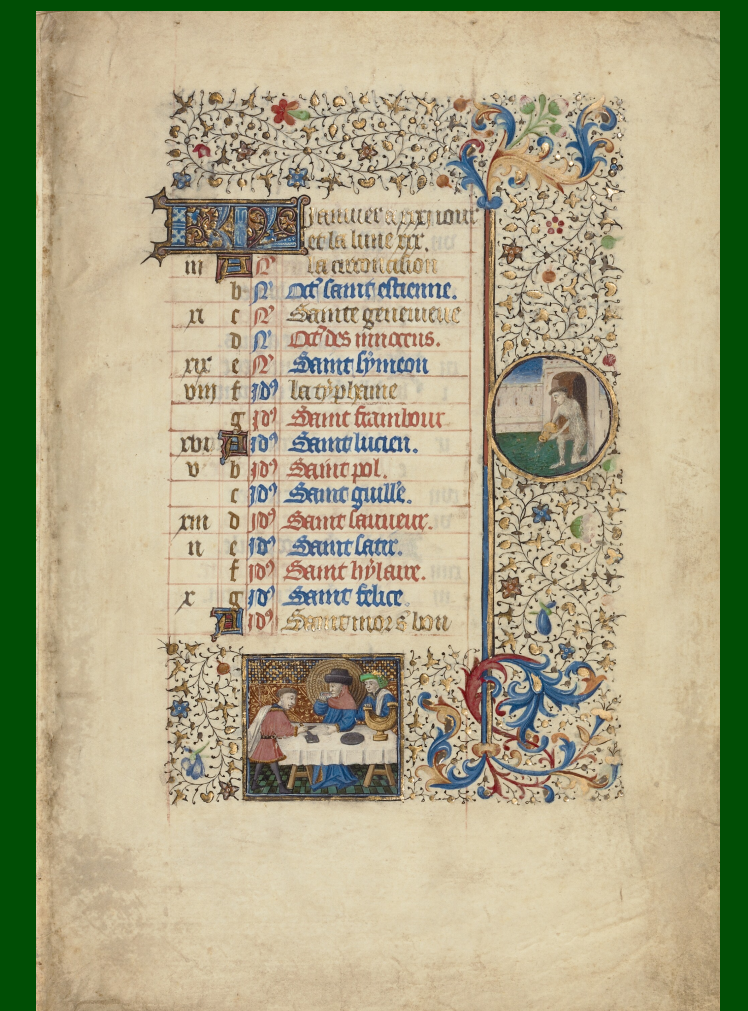 KL Januier a xxxj iour
et la lune xxx.
iii A N la circoncision
b N Oct' saint estienne.
xi c N Sainte geneuieue
d N Oct' des innocens.
xix e N Saint symeon
viii f id' la typhaine
g id' Saint frambour
xvi A id' Saint lucien.
v b id' Saint pol.
c id' Saint guille.
xiii d id' Saint sauueur.
ii e id' Saint satir.
f id' Saint hylaire.
x g id' Saint felice.
A id' Saint mor &